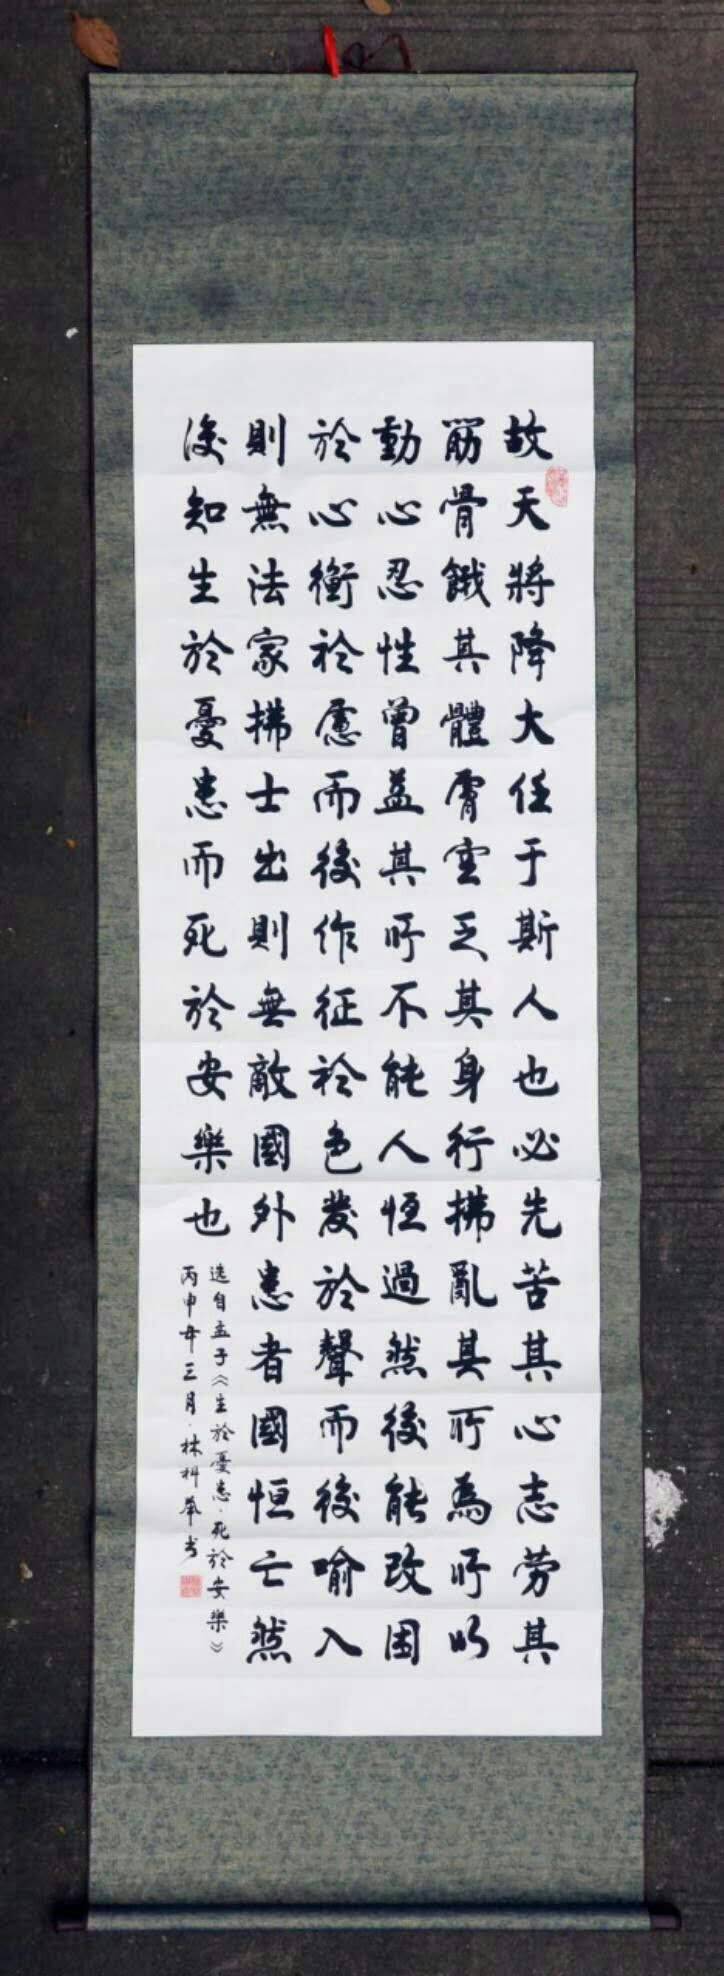 故天將降大任于斯人也必先苦其心志劳其
筋骨餓其體膚空乏其身行拂亂其所為所以
動心忍性曾益其所不能人恒過然後能改困
於心衡於慮而後作征於色發於聲而後喻入
則無法家拂士出則無敵國外患者國恒亡然
後知生於憂患而死於安樂也
选自孟子《生於憂患·死於安樂》
丙申年三月·林科书